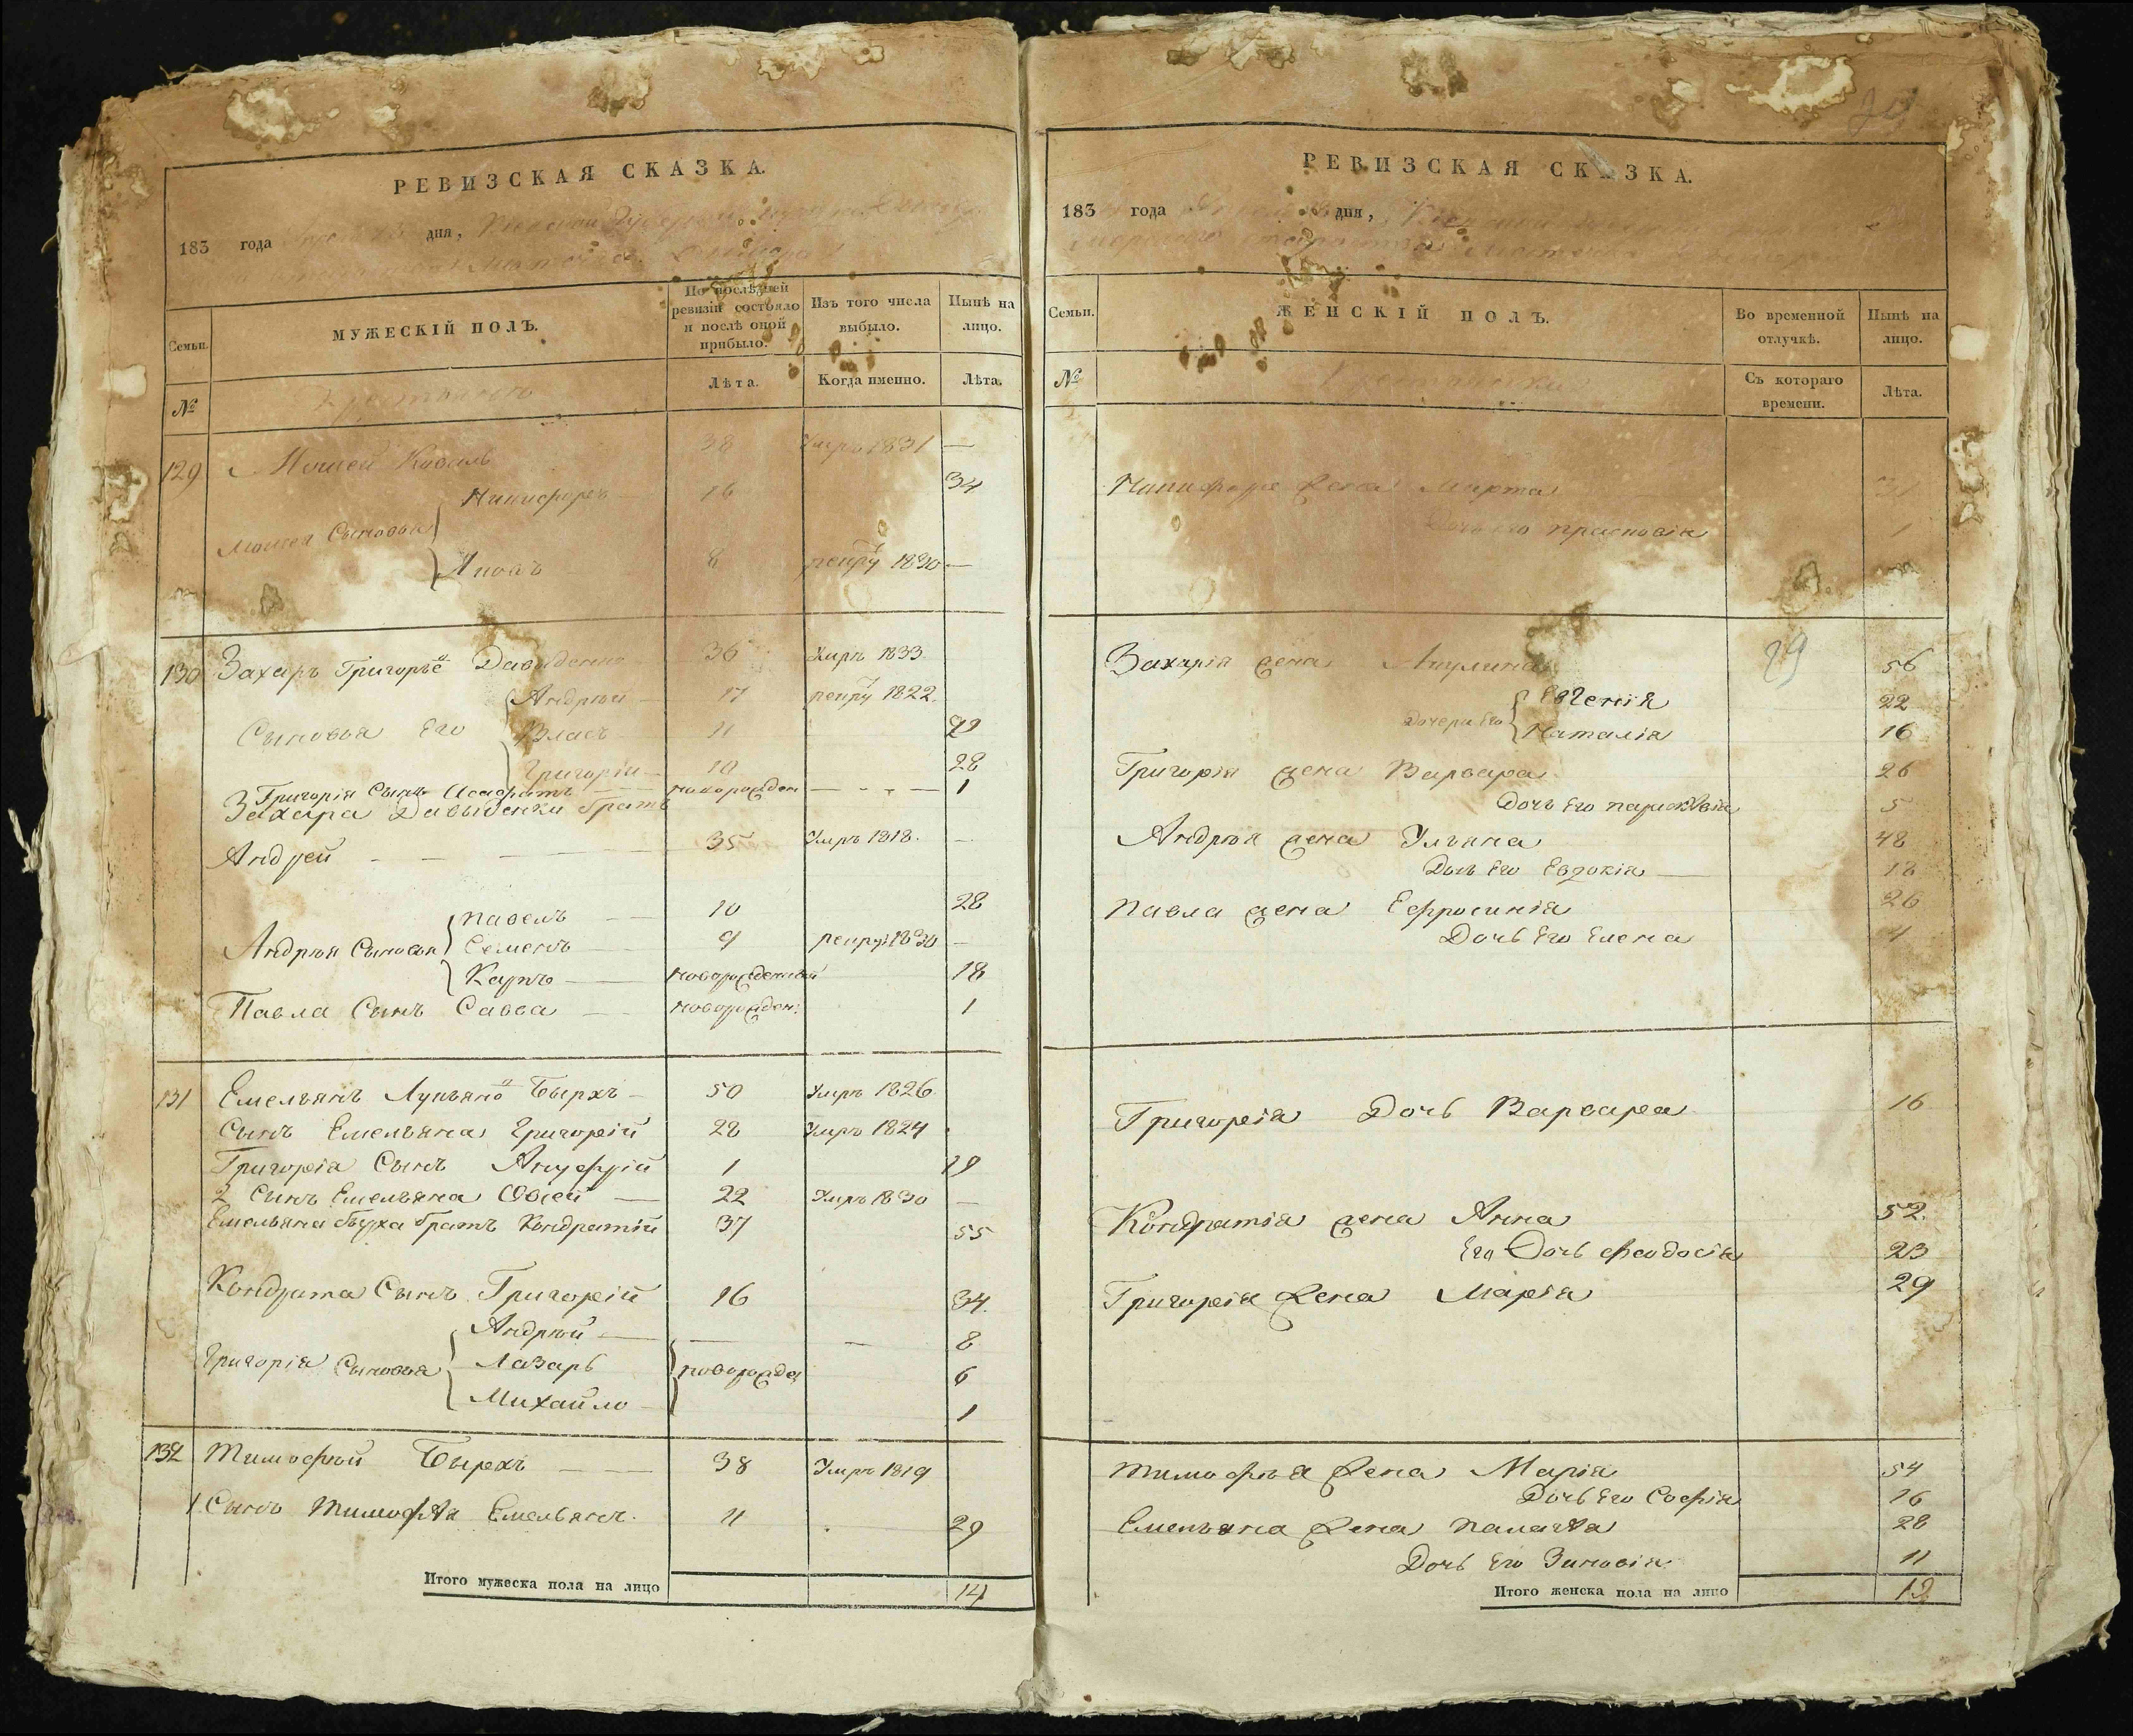 РЕВИЗСКАЯ СКАЗКА.
183 года дня,
Семьи.
МУЖЕСКІЙ ПОЛЪ.
По послѣдней ревизіи состояло и послѣ оной прибыло.
Изъ того числа выбыло.
Нынѣ на лицо.
№
Лѣта.
Когда именно.
Лѣта.
129 Мосей Коваль 38 Умръ 1831 —
Никифоръ 16 34
Мосея Сыновья
Яковъ 8 рекру 1830 —
130 Захаръ Григорьё Давыденко 36 Умръ 1833
Андрѣй 17 рекру 1822.
Сыновья Его Власъ 11
Григорій 10 28
Григорія Сынъ новорожден 1
Захара Давыденки братъ
Андрей 35 Умръ 1818. —
Павелъ 10 28
Андрѣя Сыновья Семенъ 9 рекру 1830 —
Карпъ новорожденный 18
Павла Сынъ Савва новорожден: 1
131 Емельянъ Лукьяно Быхъ 50 Умръ 1826
Сынъ Емельяна Григорій 28 Умръ 1824
Григорія Сынъ Ануфрій 1 19
2 Сынъ Емельяна 22 Умръ 1830 —
Емельяна братъ Кондратій 37 55
Кондрата Сынъ Григорій 16 34.
Андрѣй — — 8
Григорія Сыновья Лазарь новорожден 6
Михайло 1
132 Тимофѣй 38 Умръ 1819
1 Сынъ Тимофѣя Емельянъ. 11 29
Итого мужеска пола на лицо 14
РЕВИЗСКАЯ СКАЗКА.
183 года дня,
Семьи.
ЖЕНСКІЙ ПОЛЪ.
Во временной отлучкѣ.
Нынѣ на лицо.
№
Съ котораго времени.
Лѣта.
Никифора жена Марта
Дочь его Прасковія 1
29
Захарія жена Акулина 56
Евгенія 22
Дочери Его
Наталія 16
Григорія жена Варвара 26
Дочь Его Парасковія 5
Андрѣя жена Ульяна 48
Дочь Его Евдокія 18
Павла жена Ефросинія 26
Дочь Его Елена 4
Григорія Дочь Варвара 16
Кондратія жена Анна 52.
Его Дочь Феодосія 23
Григорія жена Марія 29
Тимофѣя жена Марія 54
Дочь Его Софія 16
Емельяна жена Палагѣа 28
Дочь Его Зиновія 11
Итого женска пола на лицо 19